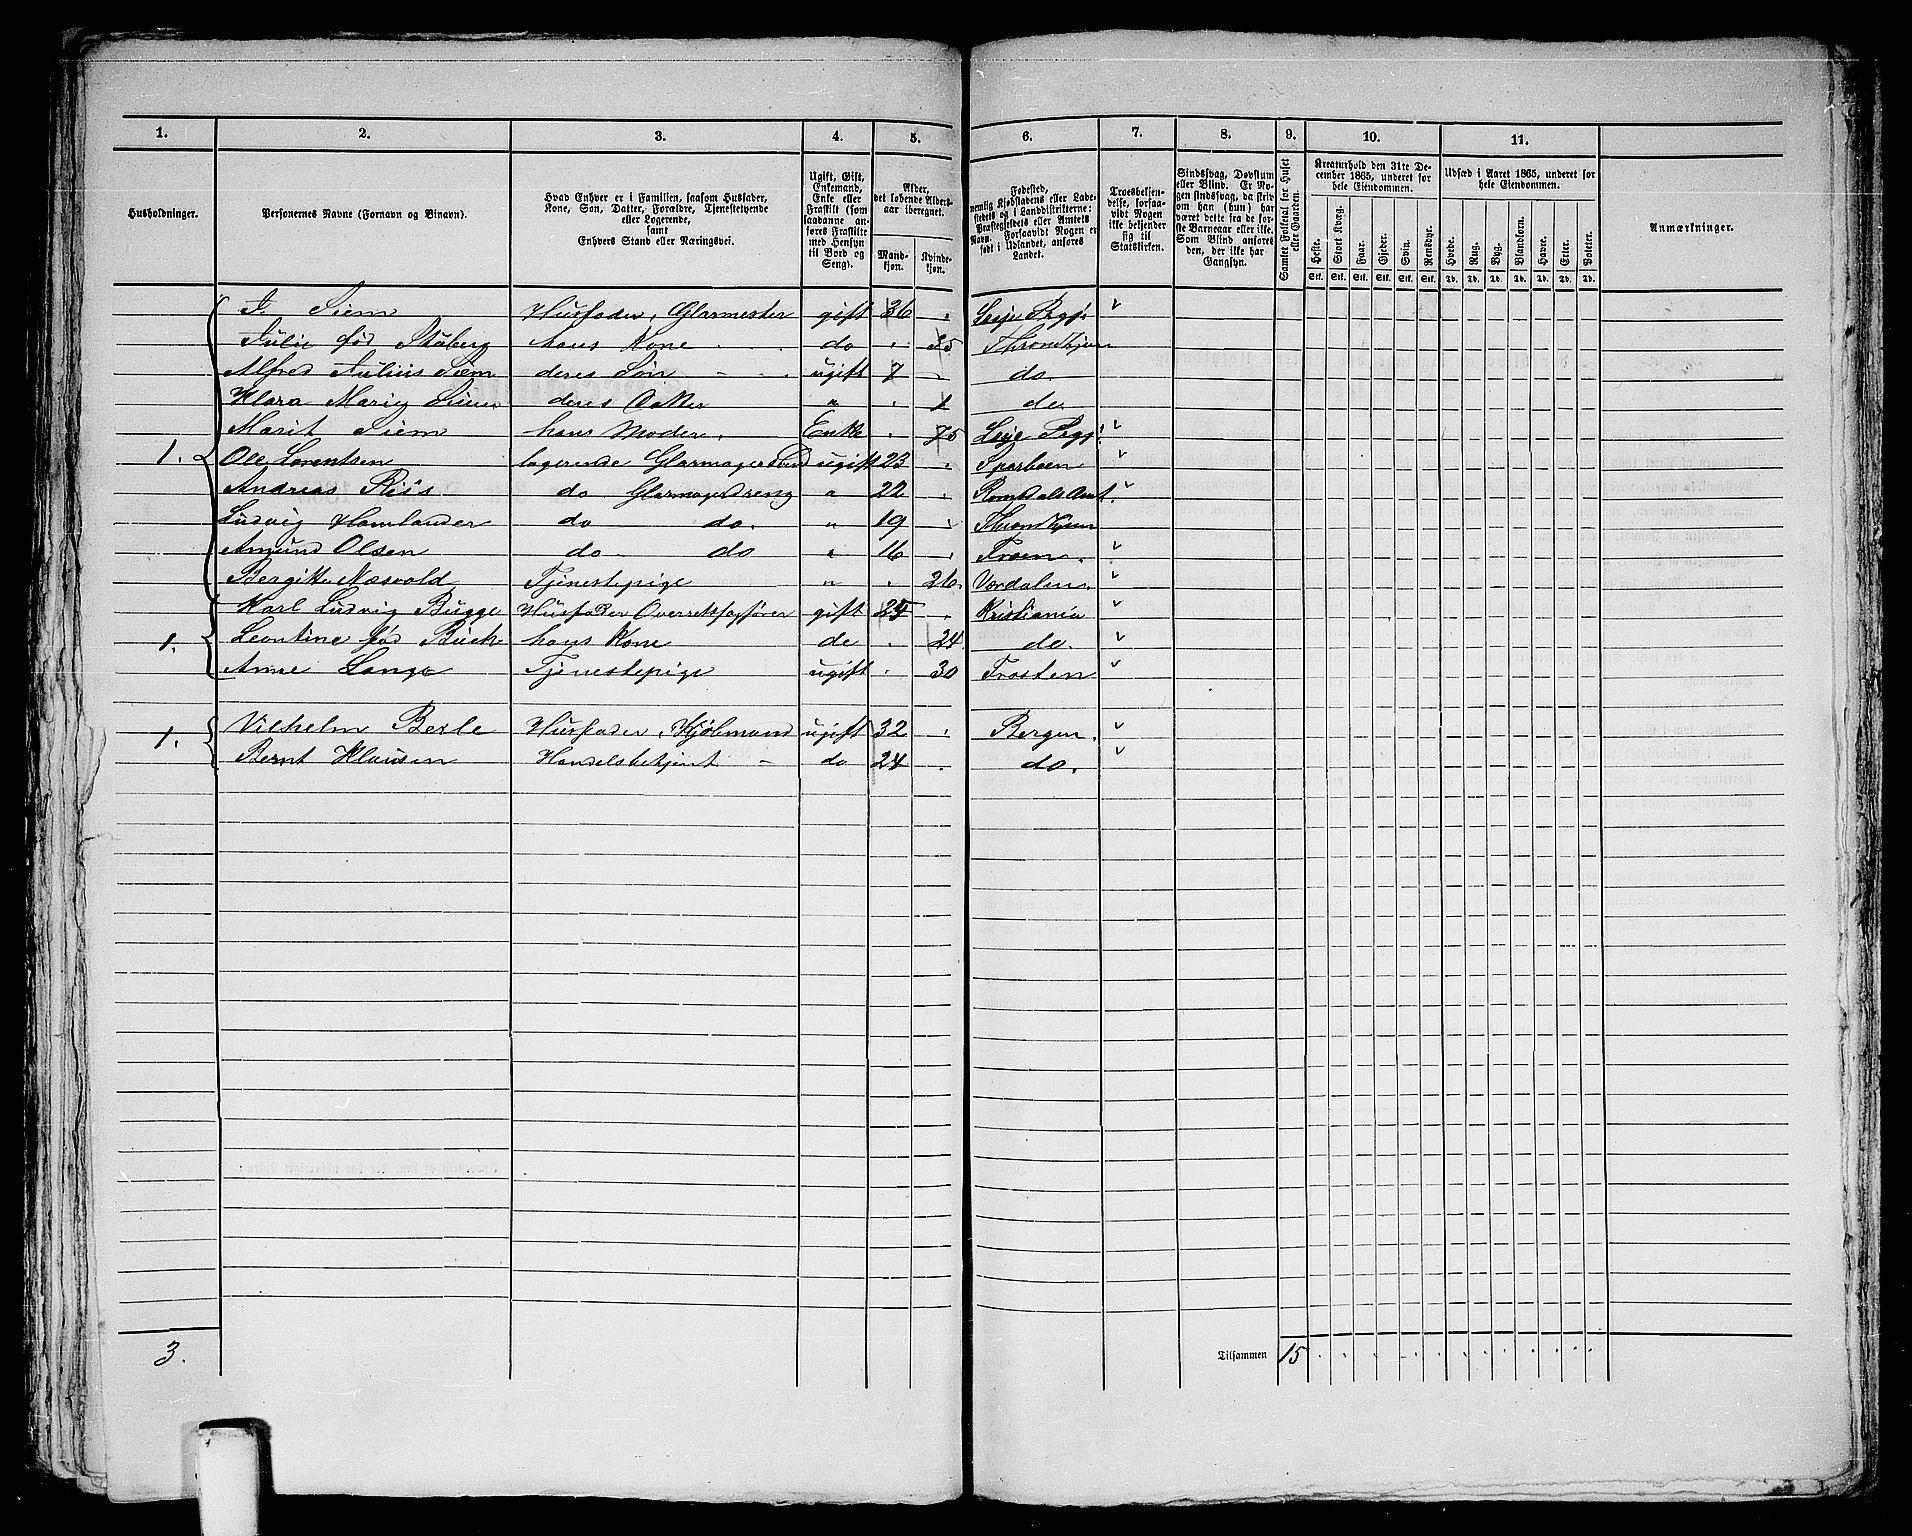 1. 2. 3. 4. 5. 6. 7. 8. 9. 10. 11.
Husholdninger.
Personernes Navne (Fornavn og Binavn).
Hvad Enhver er i Familien, saasom Husfader,
Kone, Søn, Datter, Forældre, Tjenestetyende
eller Logerende,
samt
Enhvers Stand eller Næringsvei.
Ugift, Gift,
Enkemand,
Enke eller
Fraskilt (som
saadanne an-
føres Fraskilte
med Hensyn
til Bord og
Seng).
Alder,
det løbende Alders-
aar iberegnet.
Mand-
kjøn.
Kvinde-
kjøn.
Fødested,
nemlig Kjøbstadens eller Lade-
stedets og i Landdistrikterne:
Præstegjeldets eller Amtets
Navn. Forsaavidt Nogen er
født i Udlandet, anføres
Landet.
Troesbekjen-
delse, forsaa-
vidt Nogen
ikke bekjender
sig til
Statskirken.
Sindssvag, Døvstum
eller Blind. Er No-
gen sindssvag, da skriv
om han (hun) har
været dette fra de før-
ste Barneaar eller ikke.
Som Blind anføres
den, der ikke har
Gangsyn.
Samlet Folketal for Huset
eller Gaarden.
Kreaturhold den 31te De-
cember 1865, underet for
hele Eiendommen.
Heste. Stort Kvæg. Faar. Gjeder. Svin. Rensdyr.
Stk. Stk. Stk. Stk. Stk. Stk.
Udsæd i Aaret 1865, underet for
hele Eiendommen.
Hvede. Rug. Byg. Blandkorn. Havre. Erter. Poteter.
Td. Td. Td. Td. Td. Td. Td.
Anmærkninger.
Siem Husfader, Glarmester gift 36 Lesje Prgj.
Julie fød hans Kone do 35 Throndhjem
Alfred Julius Siem deres Søn ugift 7 do
Klara Marie Siem deres Datter " 1 do
Marit Siem hans Moder. Enke 75 Lesje Prgj.
1. Ole Lorentsen logerende ugift 23 Sparboen
Andreas Riis do Glarmagerdreng " 22 Romsdals Amt.
Ludvig Hamlander do do. " 19 Throndhjem
Amund Olsen do do " 16
Bergitte Næsvold Tjenestepige " 26. Værdalen.
Karl Ludvig Bugge Husfader Overretssagfører gift 25 Kristiania
1. Leontine fød hans Kone do 24 do.
Anne Lange Tjenestepige ugift 30 Frosten
1. Vilhelm Berle Husfader, Kjøbmand ugift 32 Bergen.
Bernt Klausen Handelsbetjent do 24 do.
3. Tilsammen 15